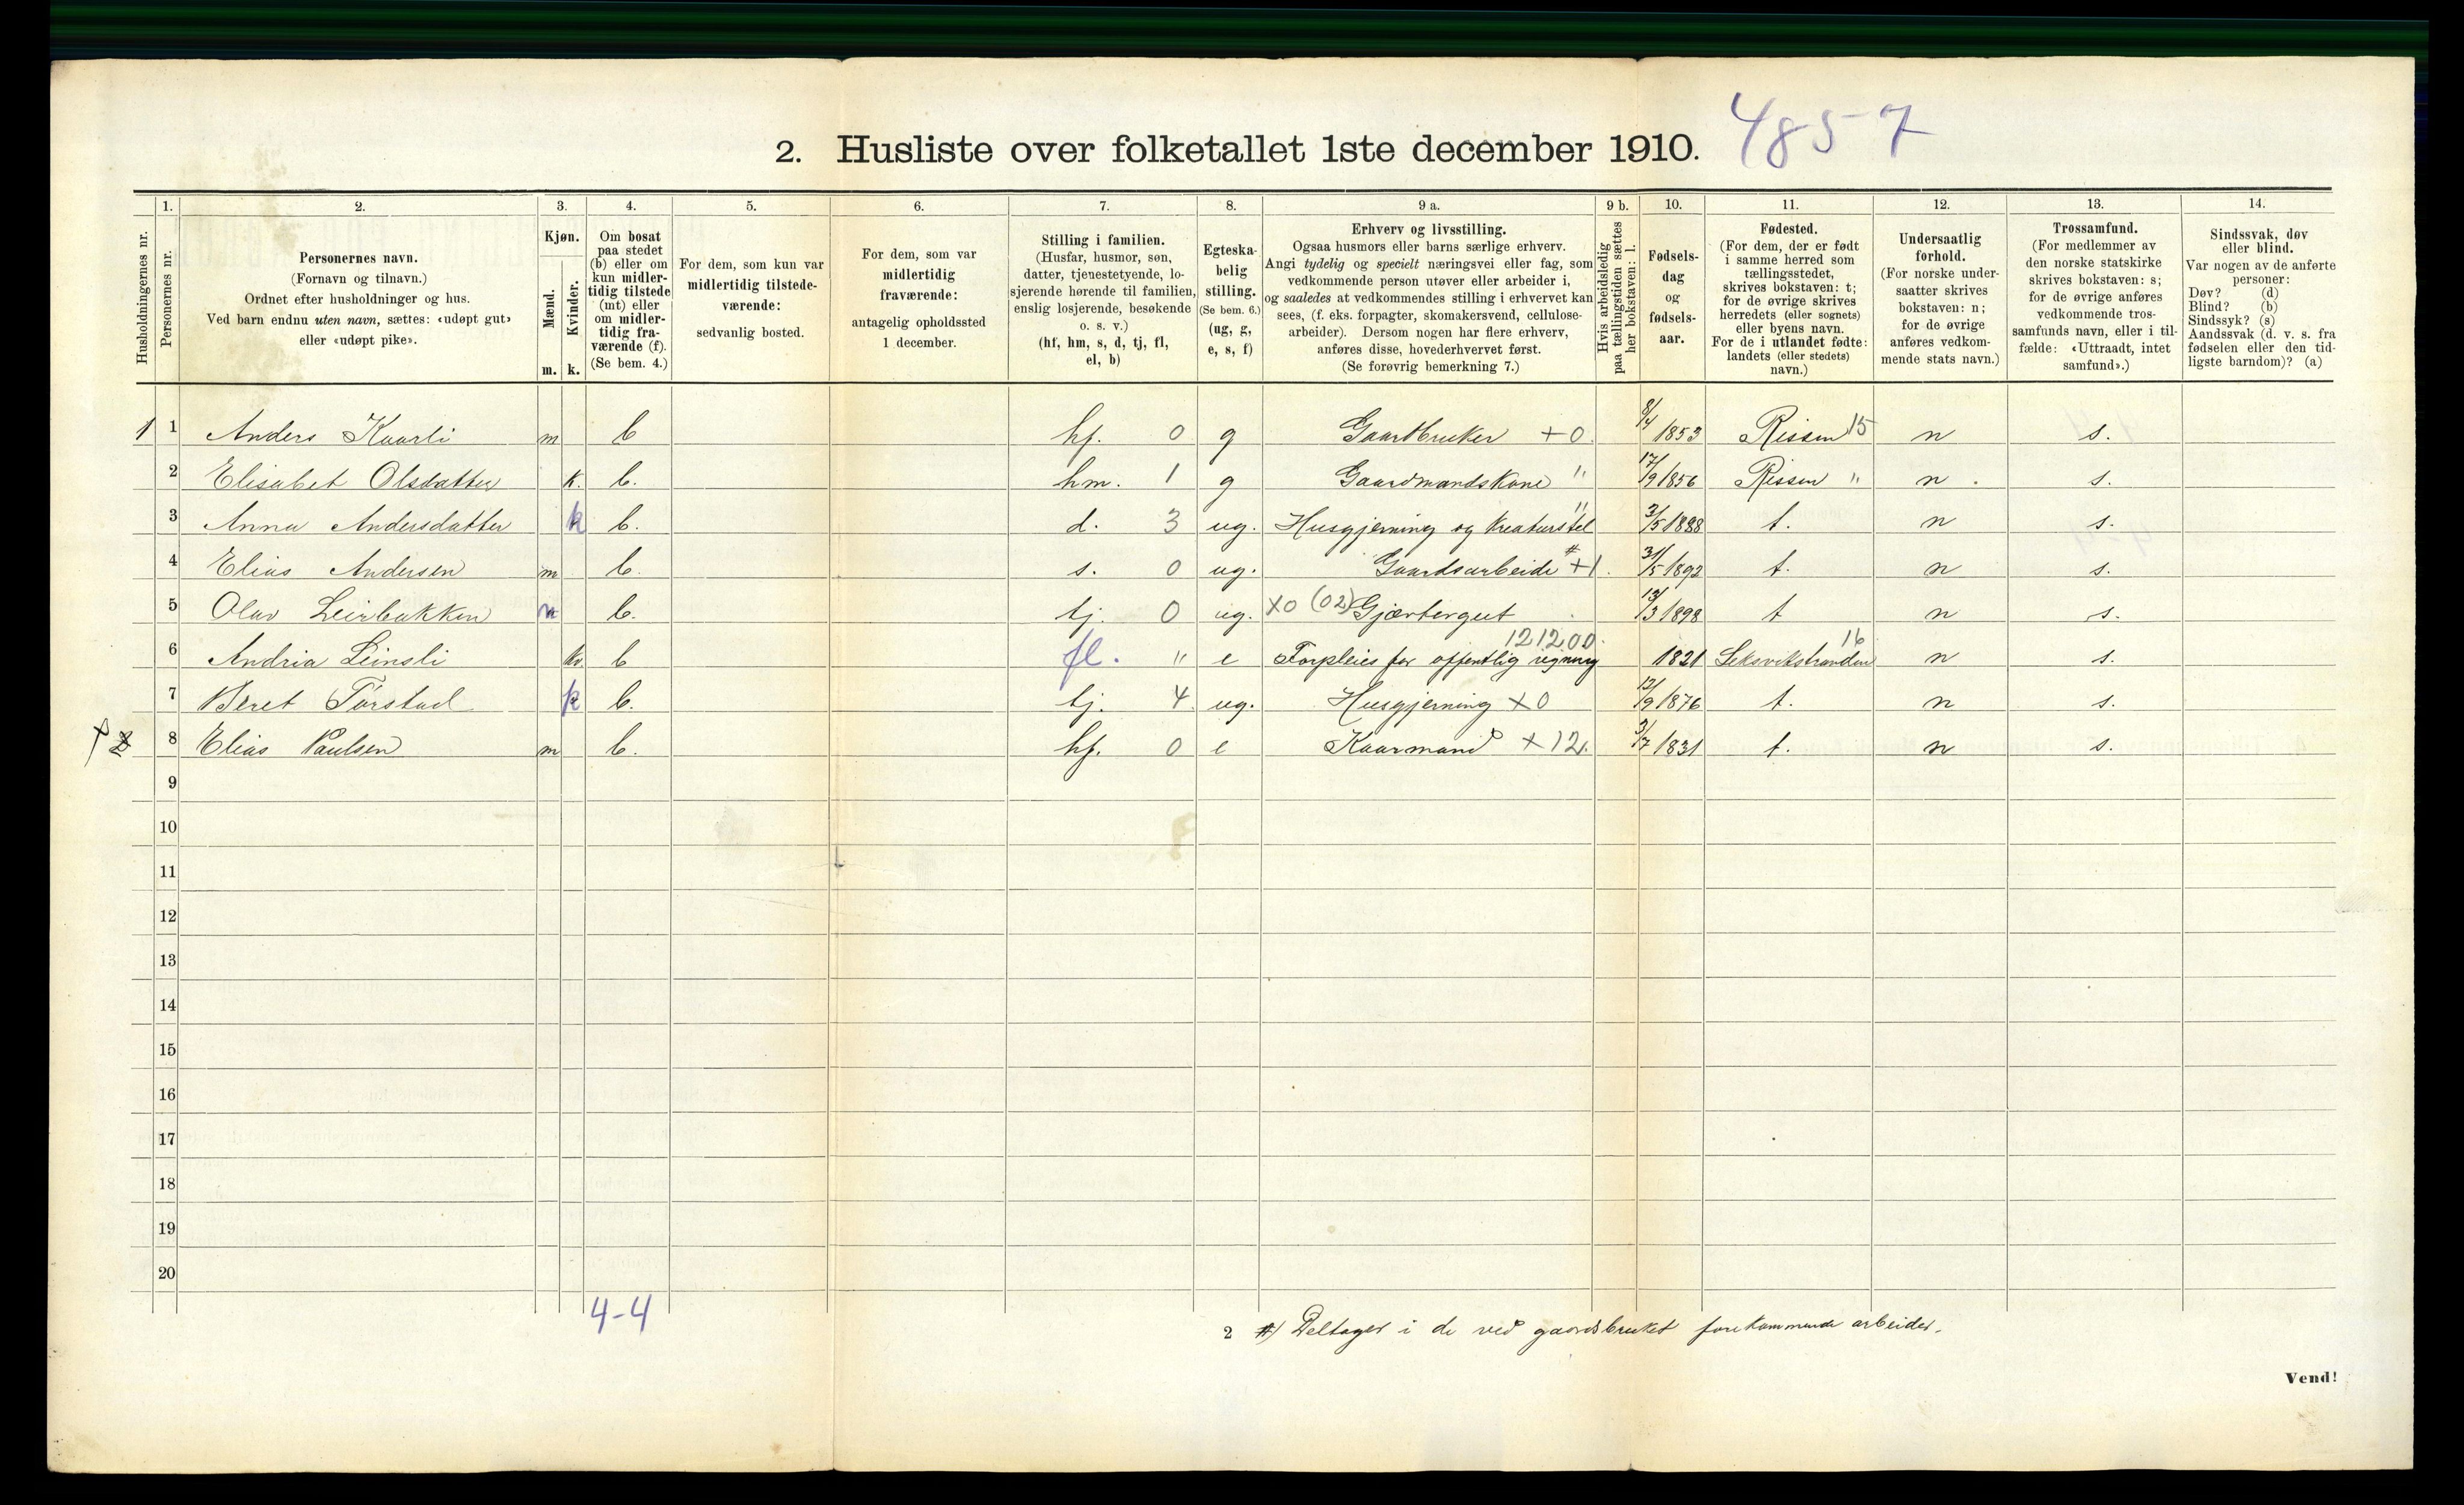 4857
2. Husliste over folketallet 1ste december 1910.
Husholdningernes nr.
1.
Personernes nr.
2.
Personernes navn.
(Fornavn og tilnavn.)
Ordnet efter husholdninger og hus.
Ved barn endnu uten navn, sættes: «udøpt gut»
eller «udøpt pike».
3.
Kjøn.
Mænd.
Kvinder.
m. k.
4.
Om bosat
paa stedet
(b) eller om
kun midler-
tidig tilstede
(mt) eller
om midler-
tidig fra-
værende (f).
(Se bem. 4.)
5.
For dem, som kun var
midlertidig tilstede-
værende:
sedvanlig bosted.
6.
For dem, som var
midlertidig
fraværende:
antagelig opholdssted
1 december.
7.
Stilling i familien.
(Husfar, husmor, søn,
datter, tjenestetyende, lo-
sjerende hørende til familien,
enslig losjerende, besøkende
o. s. v.)
(hf, hm, s, d, tj, fl,
el, b)
8.
Egteska-
belig
stilling.
(Se bem. 6.)
(ug, g,
e, s, f)
9 a.
Erhverv og livsstilling.
Ogsaa husmors eller barns særlige erhverv.
Angi tydelig og specielt næringsvei eller fag, som
vedkommende person utøver eller arbeider i,
og saaledes at vedkommendes stilling i erhvervet kan
sees, (f. eks. forpagter, skomakersvend, cellulose-
arbeider). Dersom nogen har flere erhverv,
anføres disse, hovederhvervet først.
(Se forøvrig bemerkning 7.)
9 b.
Hvis arbeidsledig
paa tællingstiden sættes
her bokstaven: l.
10.
Fødsels-
dag
og
fødsels-
aar.
11.
Fødested.
(For dem, der er født
i samme herred som
tællingsstedet,
skrives bokstaven: t;
for de øvrige skrives
herredets (eller sognets)
eller byens navn.
For de i utlandet fødte:
landets (eller stedets)
navn.)
12.
Undersaatlig
forhold.
(For norske under-
saatter skrives
bokstaven: n;
for de øvrige
anføres vedkom-
mende stats navn.)
13.
Trossamfund.
(For medlemmer av
den norske statskirke
skrives bokstaven: s;
for de øvrige anføres
vedkommende tros-
samfunds navn, eller i til-
fælde: «Uttraadt, intet
samfund».)
14.
Sindssvak, døv
eller blind.
Var nogen av de anførte
personer:
Døv? (d)
Blind? (b)
Sindssyk? (s)
Aandssvak (d. v. s. fra
fødselen eller den tid-
ligste barndom)? (a)
1 1 Anders Kaarli m b hf. 0 g Gaardbruker +0 8/4 1853 Rissen 15 n s.
2 Elisabet Olsdatter k. b. hm. 1 g Gaardmandskone " 17/9 1856 Rissen " n s.
3 Anna Andersdatter k b. d. 3 ug. Husgjerning og kreaturstel " 3/5 1888 t. n s.
4 Elias Andersen m b. s. 0 ug. Gaardsarbeide # +1. 31/5 1892 t. n s.
5 Olav Leirbakken m b. tj. 0 ug. X0 (02) Gjætergut 13/3 1898 t n s.
6 Andria Leinsli kv b fl. " e Forpleies for offentlig regning 121200. 1821 Leksvikstranden 16 n s.
7 Beret Tørstad k b. tj. 4 ug. Husgjerning X0 12/9 1876 t. n s.
8 Elias Paulsen m b. hf. 0 e Kaarmand +12. 3/7 1831 t. n s.
9
10
11
12
13
14
15
16
17
18
19
20
4-4
2 #) Deltager i de ved gaardsbruket forekommende arbeider.
Vend!